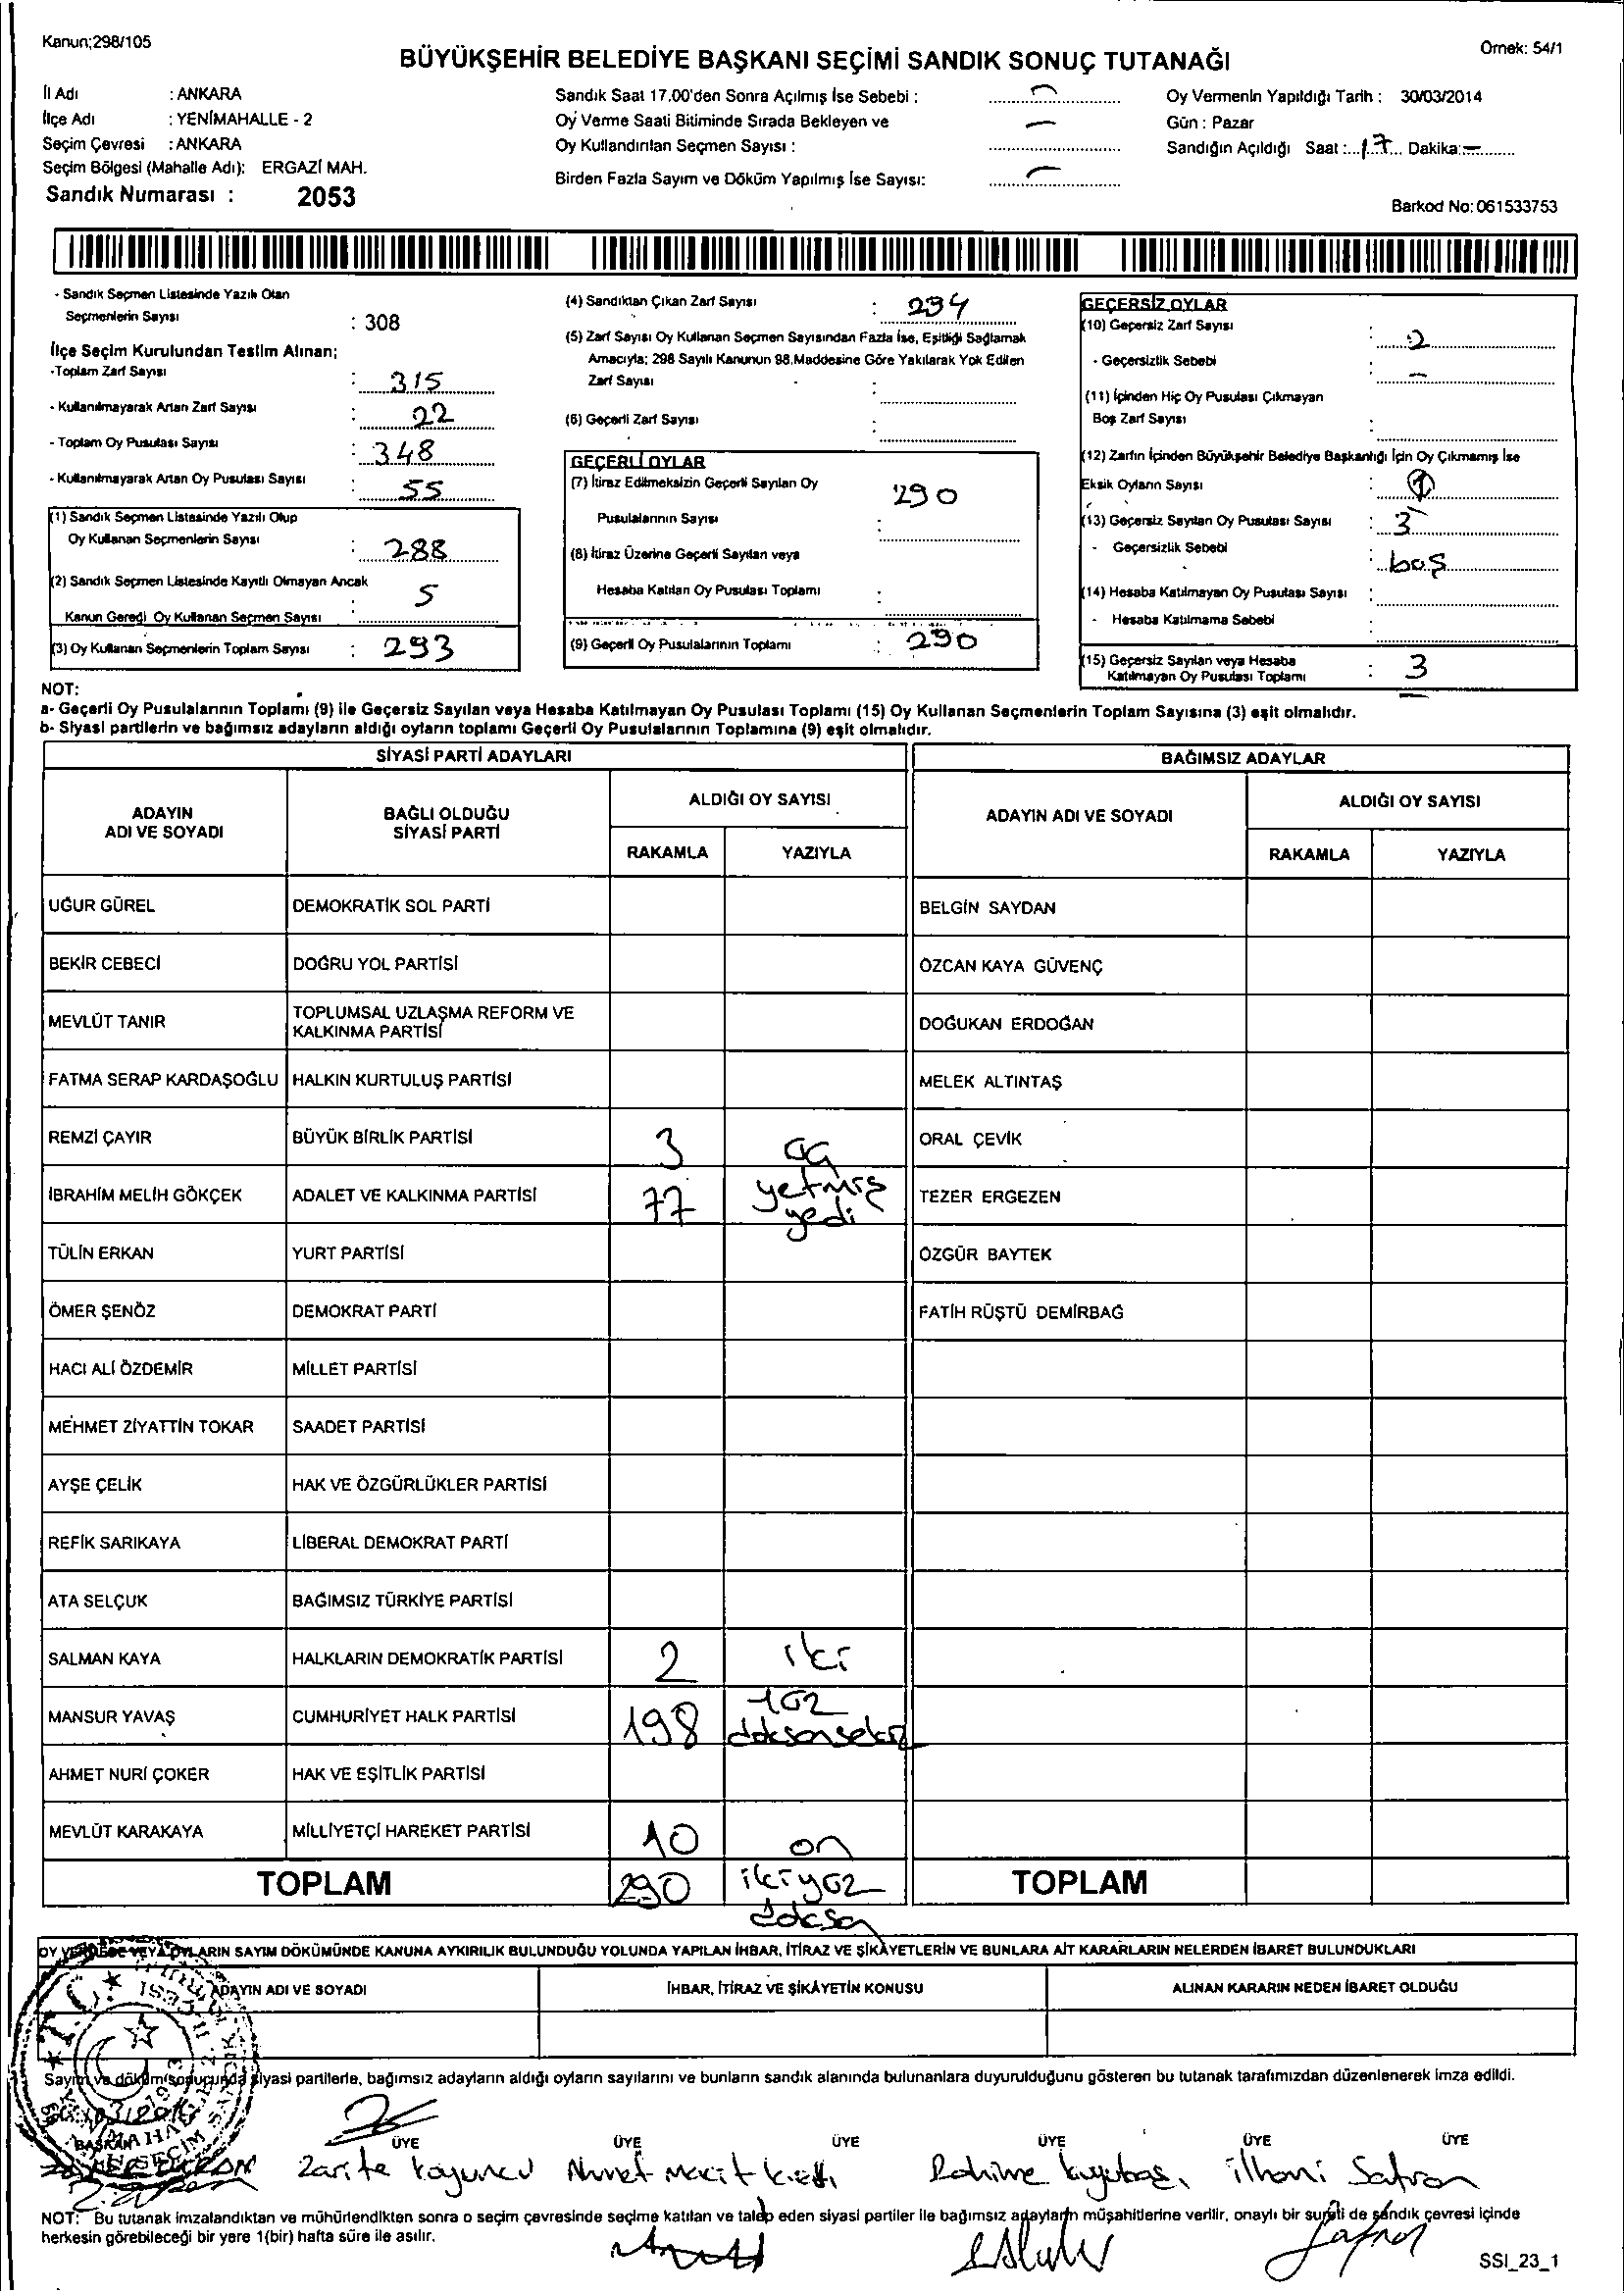 Kanun;298/105
Örnek: 54/1
BÜYÜKŞEHİR BELEDİYE BAŞKANI SEÇİMİ SANDIK SONUÇ TUTANAĞI
İl Adı : ANKARA
İlçe Adı : YENİMAHALLE - 2
Seçim Çevresi : ANKARA
Seçim Bölgesi (Mahalle Adı): ERGAZİ MAH.
Sandık Numarası : 2053
Sandık Saat 17.00'den Sonra Açılmış İse Sebebi : —
Oy Verme Saati Bitiminde Sırada Bekleyen ve —
Oy Kullandırılan Seçmen Sayısı :
Birden Fazla Sayım ve Döküm Yapılmış İse Sayısı: —
Oy Vermenin Yapıldığı Tarih : 30/03/2014
Gün : Pazar
Sandığın Açıldığı Saat :...17... Dakika:—
Barkod No: 061533753
- Sandık Seçmen Listesinde Yazılı Olan
Seçmenlerin Sayısı : 308
İlçe Seçim Kurulundan Teslim Alınan;
-Toplam Zarf Sayısı : 315
- Kullanılmayarak Artan Zarf Sayısı : 22
- Toplam Oy Pusulası Sayısı : 348
- Kullanılmayarak Artan Oy Pusulası Sayısı : 55
(1) Sandık Seçmen Listesinde Yazılı Olup
Oy Kullanan Seçmenlerin Sayısı : 288
(2) Sandık Seçmen Listesinde Kayıtlı Olmayan Ancak
Kanun Gereği Oy Kullanan Seçmen Sayısı : 5
(3) Oy Kullanan Seçmenlerin Toplam Sayısı : 293
(4) Sandıktan Çıkan Zarf Sayısı : 294
(5) Zarf Sayısı Oy Kullanan Seçmen Sayısından Fazla İse, Eşitliği Sağlamak
Amacıyla; 298 Sayılı Kanunun 98.Maddesine Göre Yakılarak Yok Edilen
Zarf Sayısı :
(6) Geçerli Zarf Sayısı :
GEÇERLİ OYLAR
(7) İtiraz Edilmeksizin Geçerli Sayılan Oy
Pusulalarının Sayısı : 290
(8) İtiraz Üzerine Geçerli Sayılan veya
Hesaba Katılan Oy Pusulası Toplamı :
(9) Geçerli Oy Pusulalarının Toplamı : 290
GEÇERSİZ OYLAR
(10) Geçersiz Zarf Sayısı : 2
- Geçersizlik Sebebi : —
(11) İçinden Hiç Oy Pusulası Çıkmayan
Boş Zarf Sayısı :
(12) Zarfın İçinden Büyükşehir Belediye Başkanlığı İçin Oy Çıkmamış İse
Eksik Oyların Sayısı : 1
(13) Geçersiz Sayılan Oy Pusulası Sayısı : 3
- Geçersizlik Sebebi : boş
(14) Hesaba Katılmayan Oy Pusulası Sayısı :
- Hesaba Katılmama Sebebi :
(15) Geçersiz Sayılan veya Hesaba
Katılmayan Oy Pusulası Toplamı : 3
NOT:
a- Geçerli Oy Pusulalarının Toplamı (9) ile Geçersiz Sayılan veya Hesaba Katılmayan Oy Pusulası Toplamı (15) Oy Kullanan Seçmenlerin Toplam Sayısına (3) eşit olmalıdır.
b- Siyasi partilerin ve bağımsız adayların aldığı oyların toplamı Geçerli Oy Pusulalarının Toplamına (9) eşit olmalıdır.
SİYASİ PARTİ ADAYLARI
BAĞIMSIZ ADAYLAR
ADAYIN ADI VE SOYADI
BAĞLI OLDUĞU SİYASİ PARTİ
ALDIĞI OY SAYISI
RAKAMLA YAZIYLA
ADAYIN ADI VE SOYADI
ALDIĞI OY SAYISI
RAKAMLA YAZIYLA
UĞUR GÜREL DEMOKRATİK SOL PARTİ BELGİN SAYDAN
BEKİR CEBECİ DOĞRU YOL PARTİSİ ÖZCAN KAYA GÜVENÇ
MEVLÜT TANIR TOPLUMSAL UZLAŞMA REFORM VE KALKINMA PARTİSİ DOĞUKAN ERDOĞAN
FATMA SERAP KARDAŞOĞLU HALKIN KURTULUŞ PARTİSİ MELEK ALTINTAŞ
REMZİ ÇAYIR BÜYÜK BİRLİK PARTİSİ 3 üç ORAL ÇEVİK
İBRAHİM MELİH GÖKÇEK ADALET VE KALKINMA PARTİSİ 77 yetmiş yedi TEZER ERGEZEN
TÜLİN ERKAN YURT PARTİSİ ÖZGÜR BAYTEK
ÖMER ŞENÖZ DEMOKRAT PARTİ FATİH RÜŞTÜ DEMİRBAĞ
HACI ALİ ÖZDEMİR MİLLET PARTİSİ
MEHMET ZİYATTİN TOKAR SAADET PARTİSİ
AYŞE ÇELİK HAK VE ÖZGÜRLÜKLER PARTİSİ
REFİK SARIKAYA LİBERAL DEMOKRAT PARTİ
ATA SELÇUK BAĞIMSIZ TÜRKİYE PARTİSİ
SALMAN KAYA HALKLARIN DEMOKRATİK PARTİSİ 2 iki
MANSUR YAVAŞ CUMHURİYET HALK PARTİSİ 198 yüz doksansekiz
AHMET NURİ ÇOKER HAK VE EŞİTLİK PARTİSİ
MEVLÜT KARAKAYA MİLLİYETÇİ HAREKET PARTİSİ 10 on
TOPLAM 290 ikiyüz doksan TOPLAM
OY VERMEDE VEYA OYLARIN SAYIM DÖKÜMÜNDE KANUNA AYKIRILIK BULUNDUĞU YOLUNDA YAPILAN İHBAR, İTİRAZ VE ŞİKAYETLERİN VE BUNLARA AİT KARARLARIN NELERDEN İBARET BULUNDUKLARI
ADAYIN ADI VE SOYADI İHBAR, İTİRAZ VE ŞİKAYETİN KONUSU ALINAN KARARIN NEDEN İBARET OLDUĞU
Sayım ve döküm sonucunda siyasi partilerle, bağımsız adayların aldığı oyların sayılarını ve bunların sandık alanında bulunanlara duyurulduğunu gösteren bu tutanak tarafımızdan düzenlenerek imza edildi.
BAŞKAN ÜYE ÜYE ÜYE ÜYE ÜYE ÜYE
Zarife Koyuncu Rahime ilhami Safran
NOT: Bu tutanak imzalandıktan ve mühürlendikten sonra o seçim çevresinde seçime katılan ve talep eden siyasi partiler ile bağımsız adayların müşahitlerine verilir, onaylı bir sureti de sandık çevresi içinde
herkesin görebileceği bir yere 1(bir) hafta süre ile asılır.
SSI_23_1